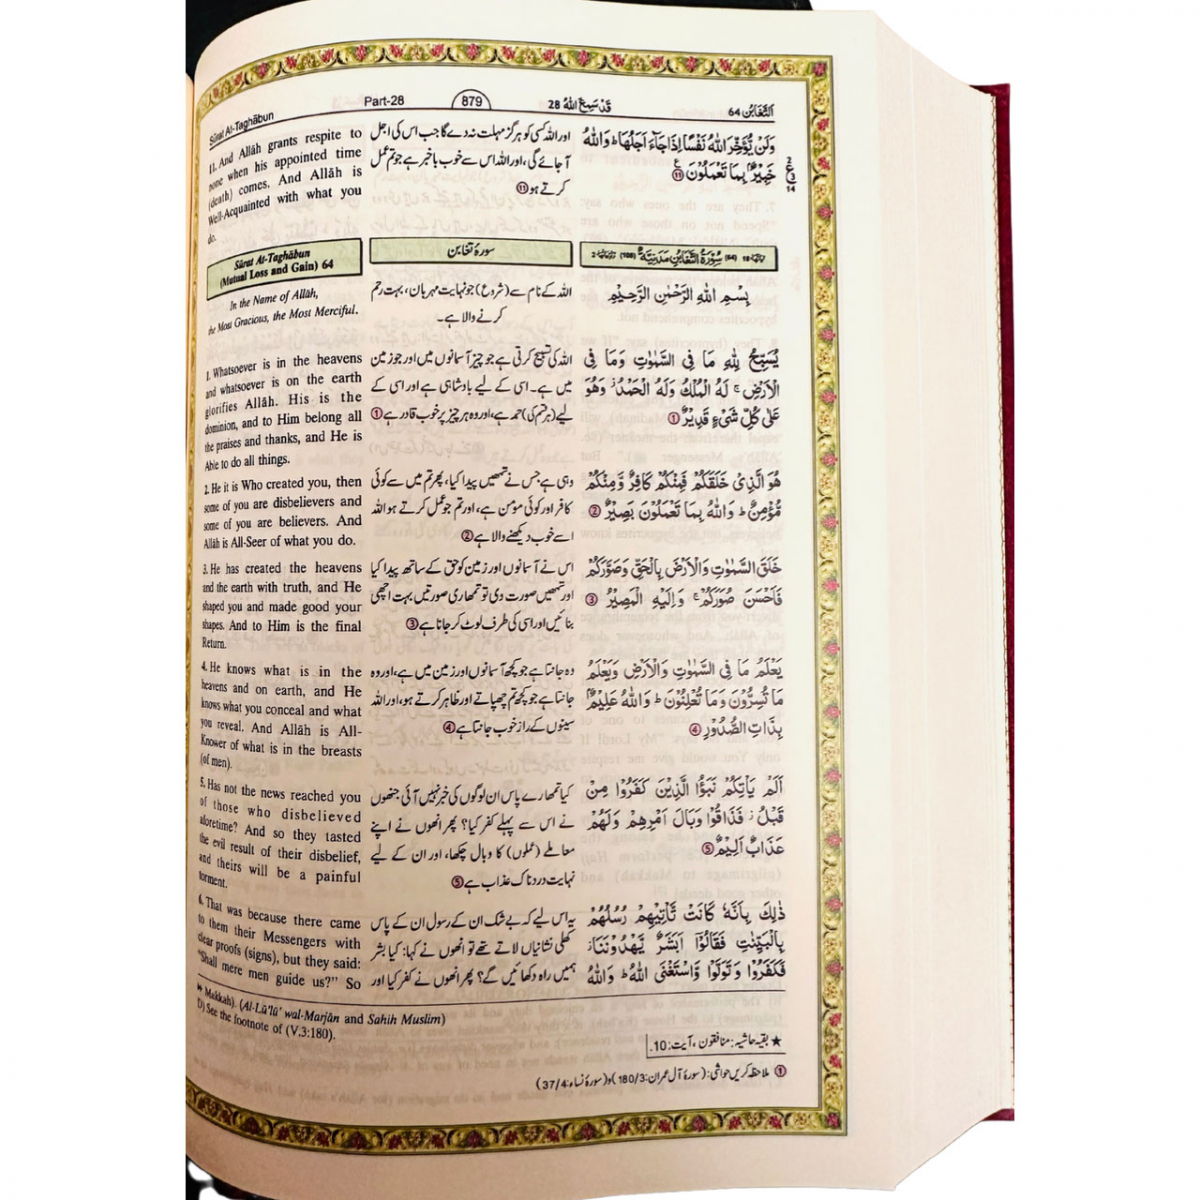 Sûrat At-Taghâbun
Part-28
879
قَدْ سَمِعَ اللّٰهُ 28
اَلتَّغَابُن 64
11. And Allâh grants respite to
none when his appointed time
(death) comes. And Allâh is
Well-Acquainted with what you
do.
اور اللہ کسی کو ہرگز مہلت نہ دے گا جب اس کی اجل
آ جائے گی، اور اللہ اس سے خوب باخبر ہے جو تم عمل
کرتے ہو ⑪
وَلَنْ يُّؤَخِّرَ اللّٰهُ نَفْسًا اِذَا جَآءَ اَجَلُهَا ؕ وَاللّٰهُ
خَبِيْرٌۢ بِمَا تَعْمَلُوْنَ ⑪
Sûrat At-Taghâbun
(Mutual Loss and Gain) 64
سورۂ تغابن
سُوْرَةُ التَّغَابُنِ مَدَنِيَّةٌ (64) (108)
In the Name of Allâh,
the Most Gracious, the Most Merciful.
اللہ کے نام سے (شروع) جو نہایت مہربان، بہت رحم
کرنے والا ہے۔
بِسْمِ اللّٰهِ الرَّحْمٰنِ الرَّحِيْمِ
1. Whatsoever is in the heavens
and whatsoever is on the earth
glorifies Allâh. His is the
dominion, and to Him belong all
the praises and thanks, and He is
Able to do all things.
اللہ کی تسبیح کرتی ہے جو چیز آسمانوں میں اور جو زمین
میں ہے۔ اسی کے لیے بادشاہی ہے اور اسی کے
لیے (ہر قسم کی) حمد ہے، اور وہ ہر چیز پر خوب قادر ہے ①
يُسَبِّحُ لِلّٰهِ مَا فِى السَّمٰوٰتِ وَمَا فِى
الْاَرْضِ ۚ لَهُ الْمُلْكُ وَلَهُ الْحَمْدُ ؗ وَهُوَ
عَلٰى كُلِّ شَىْءٍ قَدِيْرٌ ①
2. He it is Who created you, then
some of you are disbelievers and
some of you are believers. And
Allâh is All-Seer of what you do.
وہی ہے جس نے تمھیں پیدا کیا، پھر تم میں سے کوئی
کافر اور کوئی مؤمن ہے، اور تم جو عمل کرتے ہو اللہ
اسے خوب دیکھنے والا ہے ②
هُوَ الَّذِىْ خَلَقَكُمْ فَمِنْكُمْ كَافِرٌ وَّمِنْكُمْ
مُّؤْمِنٌ ؕ وَاللّٰهُ بِمَا تَعْمَلُوْنَ بَصِيْرٌ ②
3. He has created the heavens
and the earth with truth, and He
shaped you and made good your
shapes. And to Him is the final
Return.
اس نے آسمانوں اور زمین کو حق کے ساتھ پیدا کیا
اور تمھیں صورت دی تو تمھاری صورتیں بہت اچھی
بنائیں اور اسی کی طرف لوٹ کر جانا ہے ③
خَلَقَ السَّمٰوٰتِ وَالْاَرْضَ بِالْحَقِّ وَصَوَّرَكُمْ
فَاَحْسَنَ صُوَرَكُمْ ۚ وَاِلَيْهِ الْمَصِيْرُ ③
4. He knows what is in the
heavens and on earth, and He
knows what you conceal and what
you reveal. And Allâh is All-
Knower of what is in the breasts
(of men).
وہ جانتا ہے جو کچھ آسمانوں اور زمین میں ہے، اور وہ
جانتا ہے جو کچھ تم چھپاتے اور ظاہر کرتے ہو، اور اللہ
سینوں کے راز خوب جانتا ہے ④
يَعْلَمُ مَا فِى السَّمٰوٰتِ وَالْاَرْضِ وَيَعْلَمُ
مَا تُسِرُّوْنَ وَمَا تُعْلِنُوْنَ ؕ وَاللّٰهُ عَلِيْمٌۢ
بِذَاتِ الصُّدُوْرِ ④
5. Has not the news reached you
of those who disbelieved
aforetime? And so they tasted
the evil result of their disbelief,
and theirs will be a painful
torment.
کیا تمھارے پاس ان لوگوں کی خبر نہیں آئی جنھوں
نے اس سے پہلے کفر کیا؟ پھر انھوں نے اپنے
معاملے (عملوں) کا وبال چکھا، اور ان کے لیے
نہایت دردناک عذاب ہے ⑤
اَلَمْ يَاْتِكُمْ نَبَؤُا الَّذِيْنَ كَفَرُوْا مِنْ
قَبْلُ ؗ فَذَاقُوْا وَبَالَ اَمْرِهِمْ وَلَهُمْ
عَذَابٌ اَلِيْمٌ ⑤
6. That was because there came
to them their Messengers with
clear proofs (signs), but they said:
"Shall mere men guide us?" So
یہ اس لیے کہ بے شک ان کے رسول ان کے پاس
کھلی نشانیاں لاتے تھے تو انھوں نے کہا: کیا بشر
ہمیں راہ دکھائیں گے؟ پھر انھوں نے کفر کیا اور
ذٰلِكَ بِاَنَّهٗ كَانَتْ تَّاْتِيْهِمْ رُسُلُهُمْ
بِالْبَيِّنٰتِ فَقَالُوْٓا اَبَشَرٌ يَّهْدُوْنَنَا ؗ
فَكَفَرُوْا وَتَوَلَّوْا وَّاسْتَغْنَى اللّٰهُ ؕ وَاللّٰهُ
Makkah). (Al-Lû'lû' wal-Marjân and Sahih Muslim)
1) See the footnote of (V.3:180).
★ بقیہ حاشیہ: منافقون، آیت: 10.
① ملاحظہ کریں حواشی: (سورۂ آل عمران: 180/3) و (سورۂ نساء: 37/4)